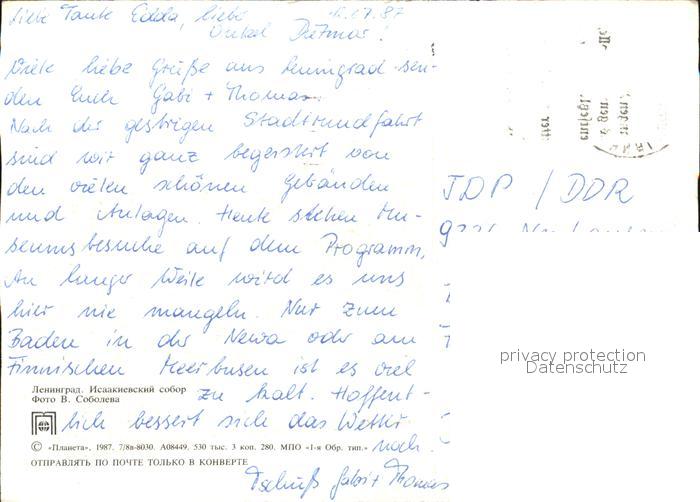 Liebe Tante Edda, liebe
Onkel Dietmar!
Viele liebe Grüße aus Leningrad sen-
den Euch Gabi + Thomas.
Nach der gestrigen Stadtrundfahrt
sind wir ganz begeistert von
den vielen schönen Gebäuden
und Anlagen. Heute stehen Mu-
seumsbesuche auf dem Programm.
An langer Weile wird es uns
hier nie mangeln. Nur zum
Baden in der Newa oder am
Finnischen Meerbusen ist es viel
zu kalt. Hoffent-
lich bessert sich das Wetter
noch.
Tschüß Gabi + Thomas
Ленинград. Исаакиевский собор
Фото В. Соболева
© «Планета», 1987. 7/8в-8030. А08449. 530 тыс. 3 коп. 280. МПО «1-я Обр. тип.»
ОТПРАВЛЯТЬ ПО ПОЧТЕ ТОЛЬКО В КОНВЕРТЕ
/ DDR
privacy protection
Datenschutz